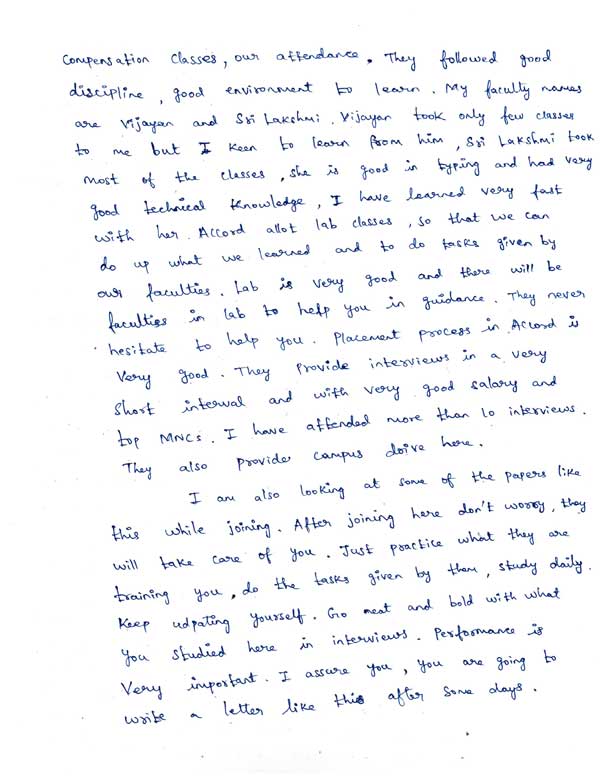 Compensation classes, our attendance. They followed good
discipline, good environment to learn. My faculty names
are Vijayan and Sri Lakshmi. Vijayan took only few classes
to me but I keen to learn from him, Sri Lakshmi took
most of the classes, she is good in typing and had very
good technical knowledge, I have learned very fast
with her. Accord allot lab classes, so that we can
do up what we learned and to do tasks given by
our faculties. Lab is very good and there will be
faculties in lab to help you in guidance. They never
hesitate to help you. Placement process in Accord is
very good. They provide interviews in a very
short interval and with very good salary and
top MNCs. I have attended more than 10 interviews.
They also provider campus drive here.
I am also looking at some of the papers like
this while joining. After joining here don't worry, they
will take care of you. Just practice what they are
training you, do the tasks given by them, study daily.
Keep udpating yourself. Go neat and bold with what
you studied here in interviews. Performance is
very important. I assure you, you are going to
write a letter like this after some days.